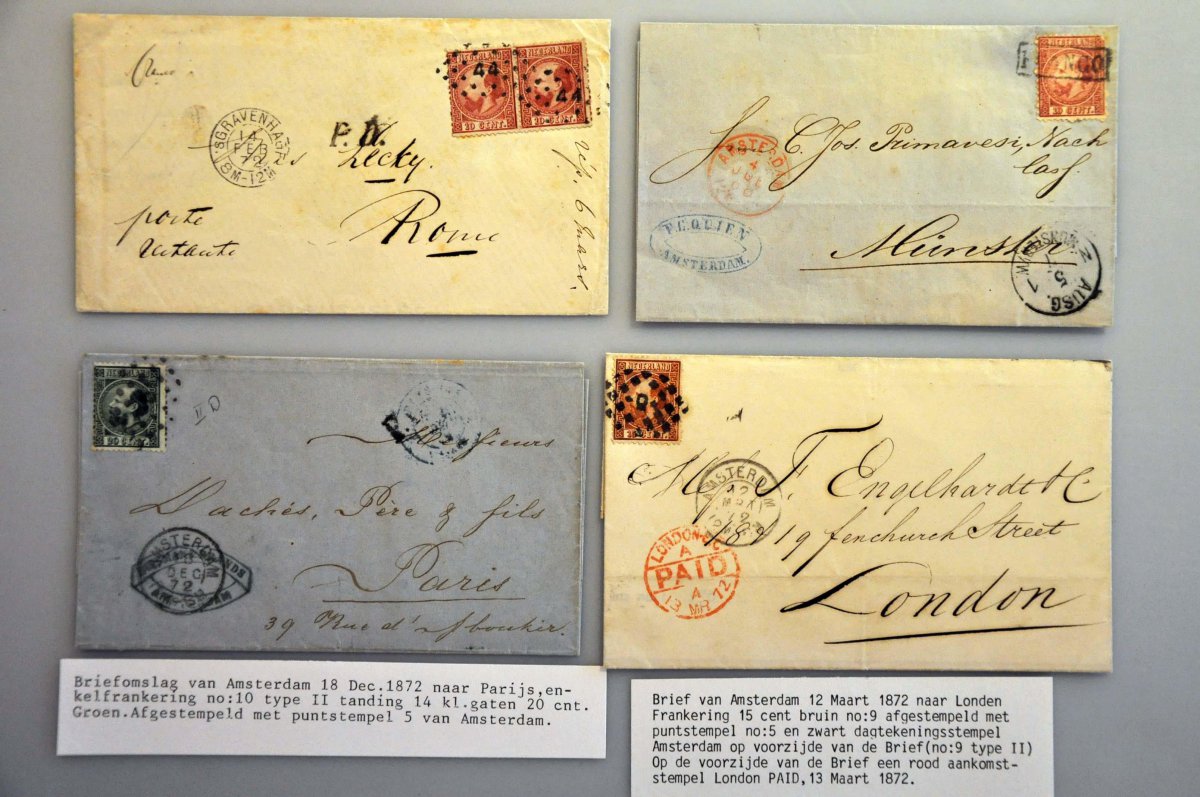 44
44
NEDERLAND
NEDERLAND
10 CENT.
10 CENT.
P.D.
'SGRAVENHAGE
14
FEB
72
8M-12M
Lecky.
Rome
poste
NEDERLAND
10 CENT.
AMSTERDAM
4
C. Jos. Primavesi, Nach
lass
P.C.QUIEN
AMSTERDAM.
Münster
AUSG.
5
NEDERLAND
20 CENT.
II D
Messieurs
Dachés, Père & fils
Paris
39 Rue d'Aboukir.
AMSTERDAM
DEC
72
NEDERLAND
15 CENT.
F. Engelhardt & C
AMSTERDAM
12
MRT
72
18 & 19 fenchurch Street
LONDON
A
PAID
A
13 MR 72
London
Briefomslag van Amsterdam 18 Dec.1872 naar Parijs,en-
kelfrankering no:10 type II tanding 14 kl.gaten 20 cnt.
Groen.Afgestempeld met puntstempel 5 van Amsterdam.
Brief van Amsterdam 12 Maart 1872 naar Londen
Frankering 15 cent bruin no:9 afgestempeld met
puntstempel no:5 en zwart dagtekeningsstempel
Amsterdam op voorzijde van de Brief(no:9 type II)
Op de voorzijde van de Brief een rood aankomst-
stempel London PAID,13 Maart 1872.